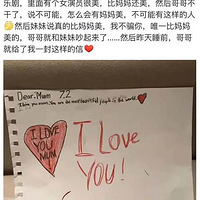 乐剧，里面有个女演员很美，比妈妈还美，然后哥哥不
干了，说不可能，怎么会有妈妈美，不可能有这样的人
🤔然后妹妹说真的比妈妈美，我不骗你，唯一比妈妈
美的，哥哥就和妹妹吵起来了......然后昨天睡前，哥哥
就给了我一封这样的信❤️
Dear: Mum 7.2
I love you mum. You are the most beautiful people in the world.
I LOVE
YOU
MUM
I Love
YOU!